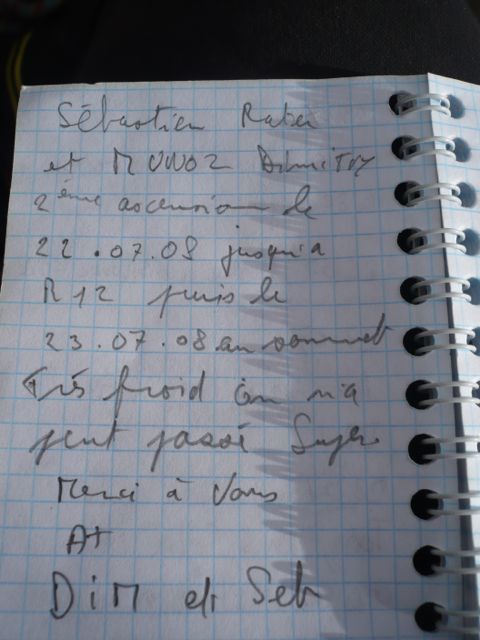 Sébastien Ratier
et MUNOZ Dimitry
2ème ascension le
22.07.08 jusqu'a
R12 puis le
23.07.08 au sommet
Très froid on n'a
peut passé Super
Merci à Vous
A+
DiM et Seb